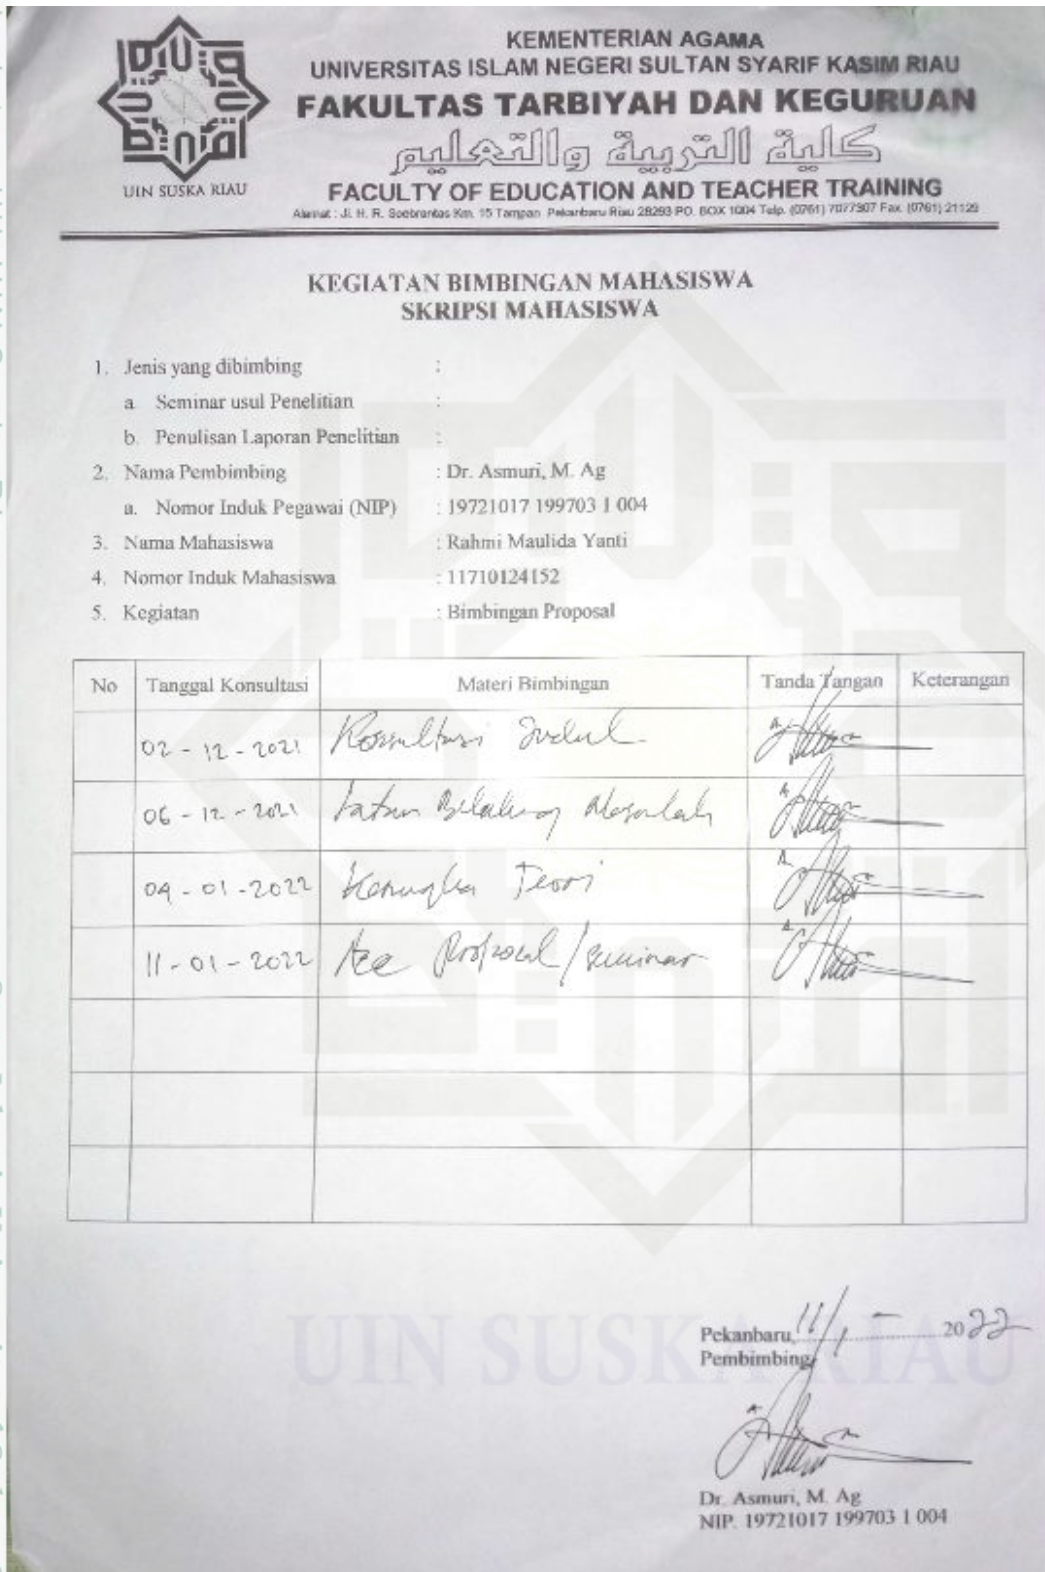 UIN SUSKA RIAU
KEMENTERIAN AGAMA
UNIVERSITAS ISLAM NEGERI SULTAN SYARIF KASIM RIAU
FAKULTAS TARBIYAH DAN KEGURUAN
كلية التربية والتعليم
FACULTY OF EDUCATION AND TEACHER TRAINING
Alamat : Jl. H. R. Soebrantas Km. 15 Tampan Pekanbaru Riau 28293 PO. BOX 1004 Telp. (0761) 7077307 Fax. (0761) 21129
KEGIATAN BIMBINGAN MAHASISWA
SKRIPSI MAHASISWA
1. Jenis yang dibimbing :
a. Seminar usul Penelitian :
b. Penulisan Laporan Penelitian :
2. Nama Pembimbing : Dr. Asmuri, M. Ag
a. Nomor Induk Pegawai (NIP) : 19721017 199703 1 004
3. Nama Mahasiswa : Rahmi Maulida Yanti
4. Nomor Induk Mahasiswa : 11710124152
5. Kegiatan : Bimbingan Proposal
No Tanggal Konsultasi Materi Bimbingan Tanda Tangan Keterangan
02 - 12 - 2021 Konsultasi Judul
06 - 12 - 2021 Latar Belakang Masalah
04 - 01 - 2022 Kerangka Teori
11 - 01 - 2022 Acc Proposal / Seminar
UIN SUSKA RIAU
Pekanbaru, 11/1 - 2022
Pembimbing
Dr. Asmuri, M. Ag
NIP. 19721017 199703 1 004